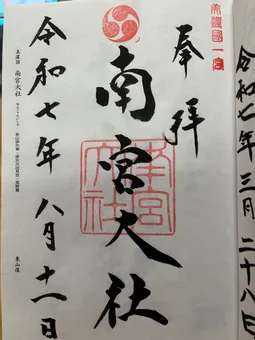 美濃國一宮
奉拝
南宮大社
南宮大社
令和七年八月十一日
美濃国 南宮大社
東山道
令和七年三月二十八日